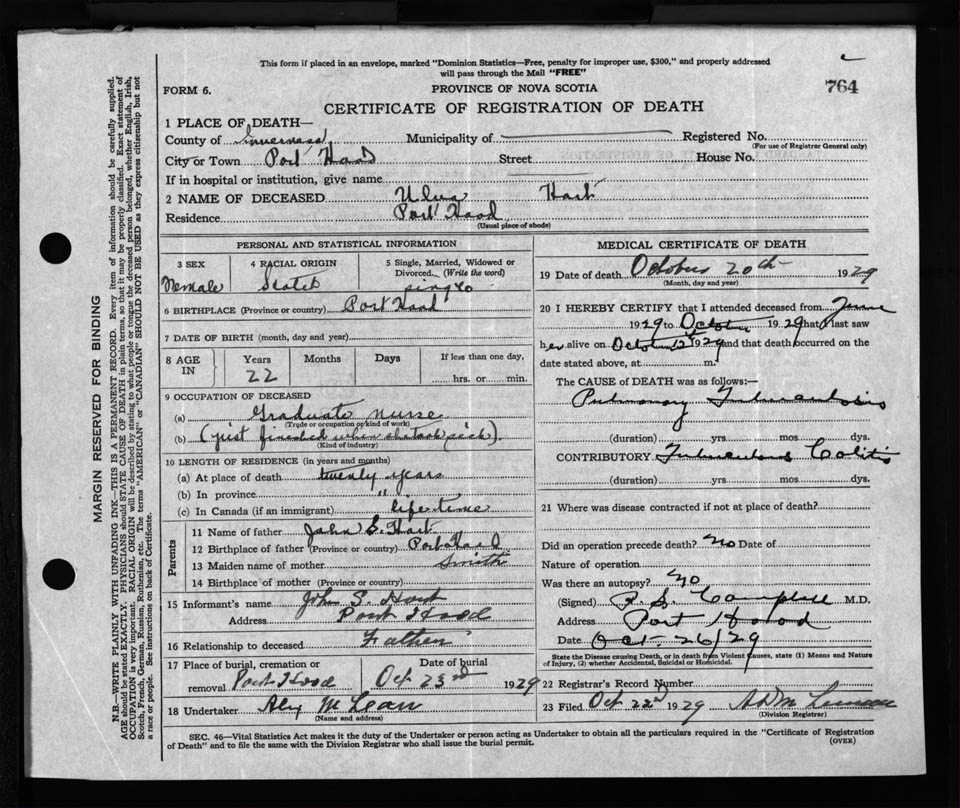 This form if placed in an envelope, marked "Dominion Statistics—Free, penalty for improper use, $300," and properly addressed
will pass through the Mail "FREE"
FORM 6.
PROVINCE OF NOVA SCOTIA
764
CERTIFICATE OF REGISTRATION OF DEATH
1 PLACE OF DEATH—
County of Inverness Municipality of Registered No.
(For use of Registrar General only)
City or Town Port Hood Street House No.
If in hospital or institution, give name
2 NAME OF DECEASED Hart
Residence Port Hood
(Usual place of abode)
PERSONAL AND STATISTICAL INFORMATION
3 SEX Female
4 RACIAL ORIGIN
5 Single, Married, Widowed or Divorced. (Write the word) single
6 BIRTHPLACE (Province or country) Port Hood
7 DATE OF BIRTH (month, day and year)
8 AGE IN Years 22 Months Days If less than one day, hrs. or min.
9 OCCUPATION OF DECEASED
(a) Graduate nurse
(Trade or occupation or kind of work)
(b) (just finished when she took sick).
(Kind of industry)
10 LENGTH OF RESIDENCE (in years and months)
(a) At place of death twenty years
(b) In province "
(c) In Canada (if an immigrant) life time
Parents
11 Name of father John S. Hart
12 Birthplace of father (Province or country) Port Hood
13 Maiden name of mother Smith
14 Birthplace of mother (Province or country)
15 Informant's name John S. Hart
Address Port Hood
16 Relationship to deceased Father
17 Place of burial, cremation or removal Port Hood Date of burial Oct 23rd 1929
18 Undertaker Alex McLean
(Name and address)
MEDICAL CERTIFICATE OF DEATH
19 Date of death October 20th 1929
(Month, day and year)
20 I HEREBY CERTIFY that I attended deceased from June
1929 to October 1929 that I last saw
her alive on October 12th 1929 and that death occurred on the
date stated above, at m.
The CAUSE OF DEATH was as follows:—
Pulmonary Tuberculosis
(duration) yrs. mos. dys.
CONTRIBUTORY Tuberculous Colitis
(duration) yrs. mos. dys.
21 Where was disease contracted if not at place of death?
Did an operation precede death? No Date of
Nature of operation
Was there an autopsy? No
(Signed) Campbell M.D.
Address Port Hood
Date Oct 26/29
State the Disease causing Death, or in death from Violent Causes, state (1) Means and Nature
of Injury, (2) whether Accidental, Suicidal or Homicidal.
22 Registrar's Record Number
23 Filed Oct 22nd 1929
(Division Registrar)
SEC. 46—Vital Statistics Act makes it the duty of the Undertaker or person acting as Undertaker to obtain all the particulars required in the "Certificate of Registration
of Death" and to file the same with the Division Registrar who shall issue the burial permit.
(OVER)
MARGIN RESERVED FOR BINDING
N.B.—WRITE PLAINLY WITH UNFADING INK—THIS IS A PERMANENT RECORD. Every item of information should be carefully supplied.
AGE should be stated EXACTLY. PHYSICIANS should STATE CAUSE OF DEATH in plain terms, so that it may be properly classified. Exact statement of
OCCUPATION is very important. RACIAL ORIGIN will be described by stating to what people or tongue the deceased person belonged, whether English, Irish,
Scotch, French, German, Russian, Ruthenian, etc. The terms "AMERICAN" or "CANADIAN" SHOULD NOT BE USED as they express citizenship but not
a race or people. See instructions on back of Certificate.